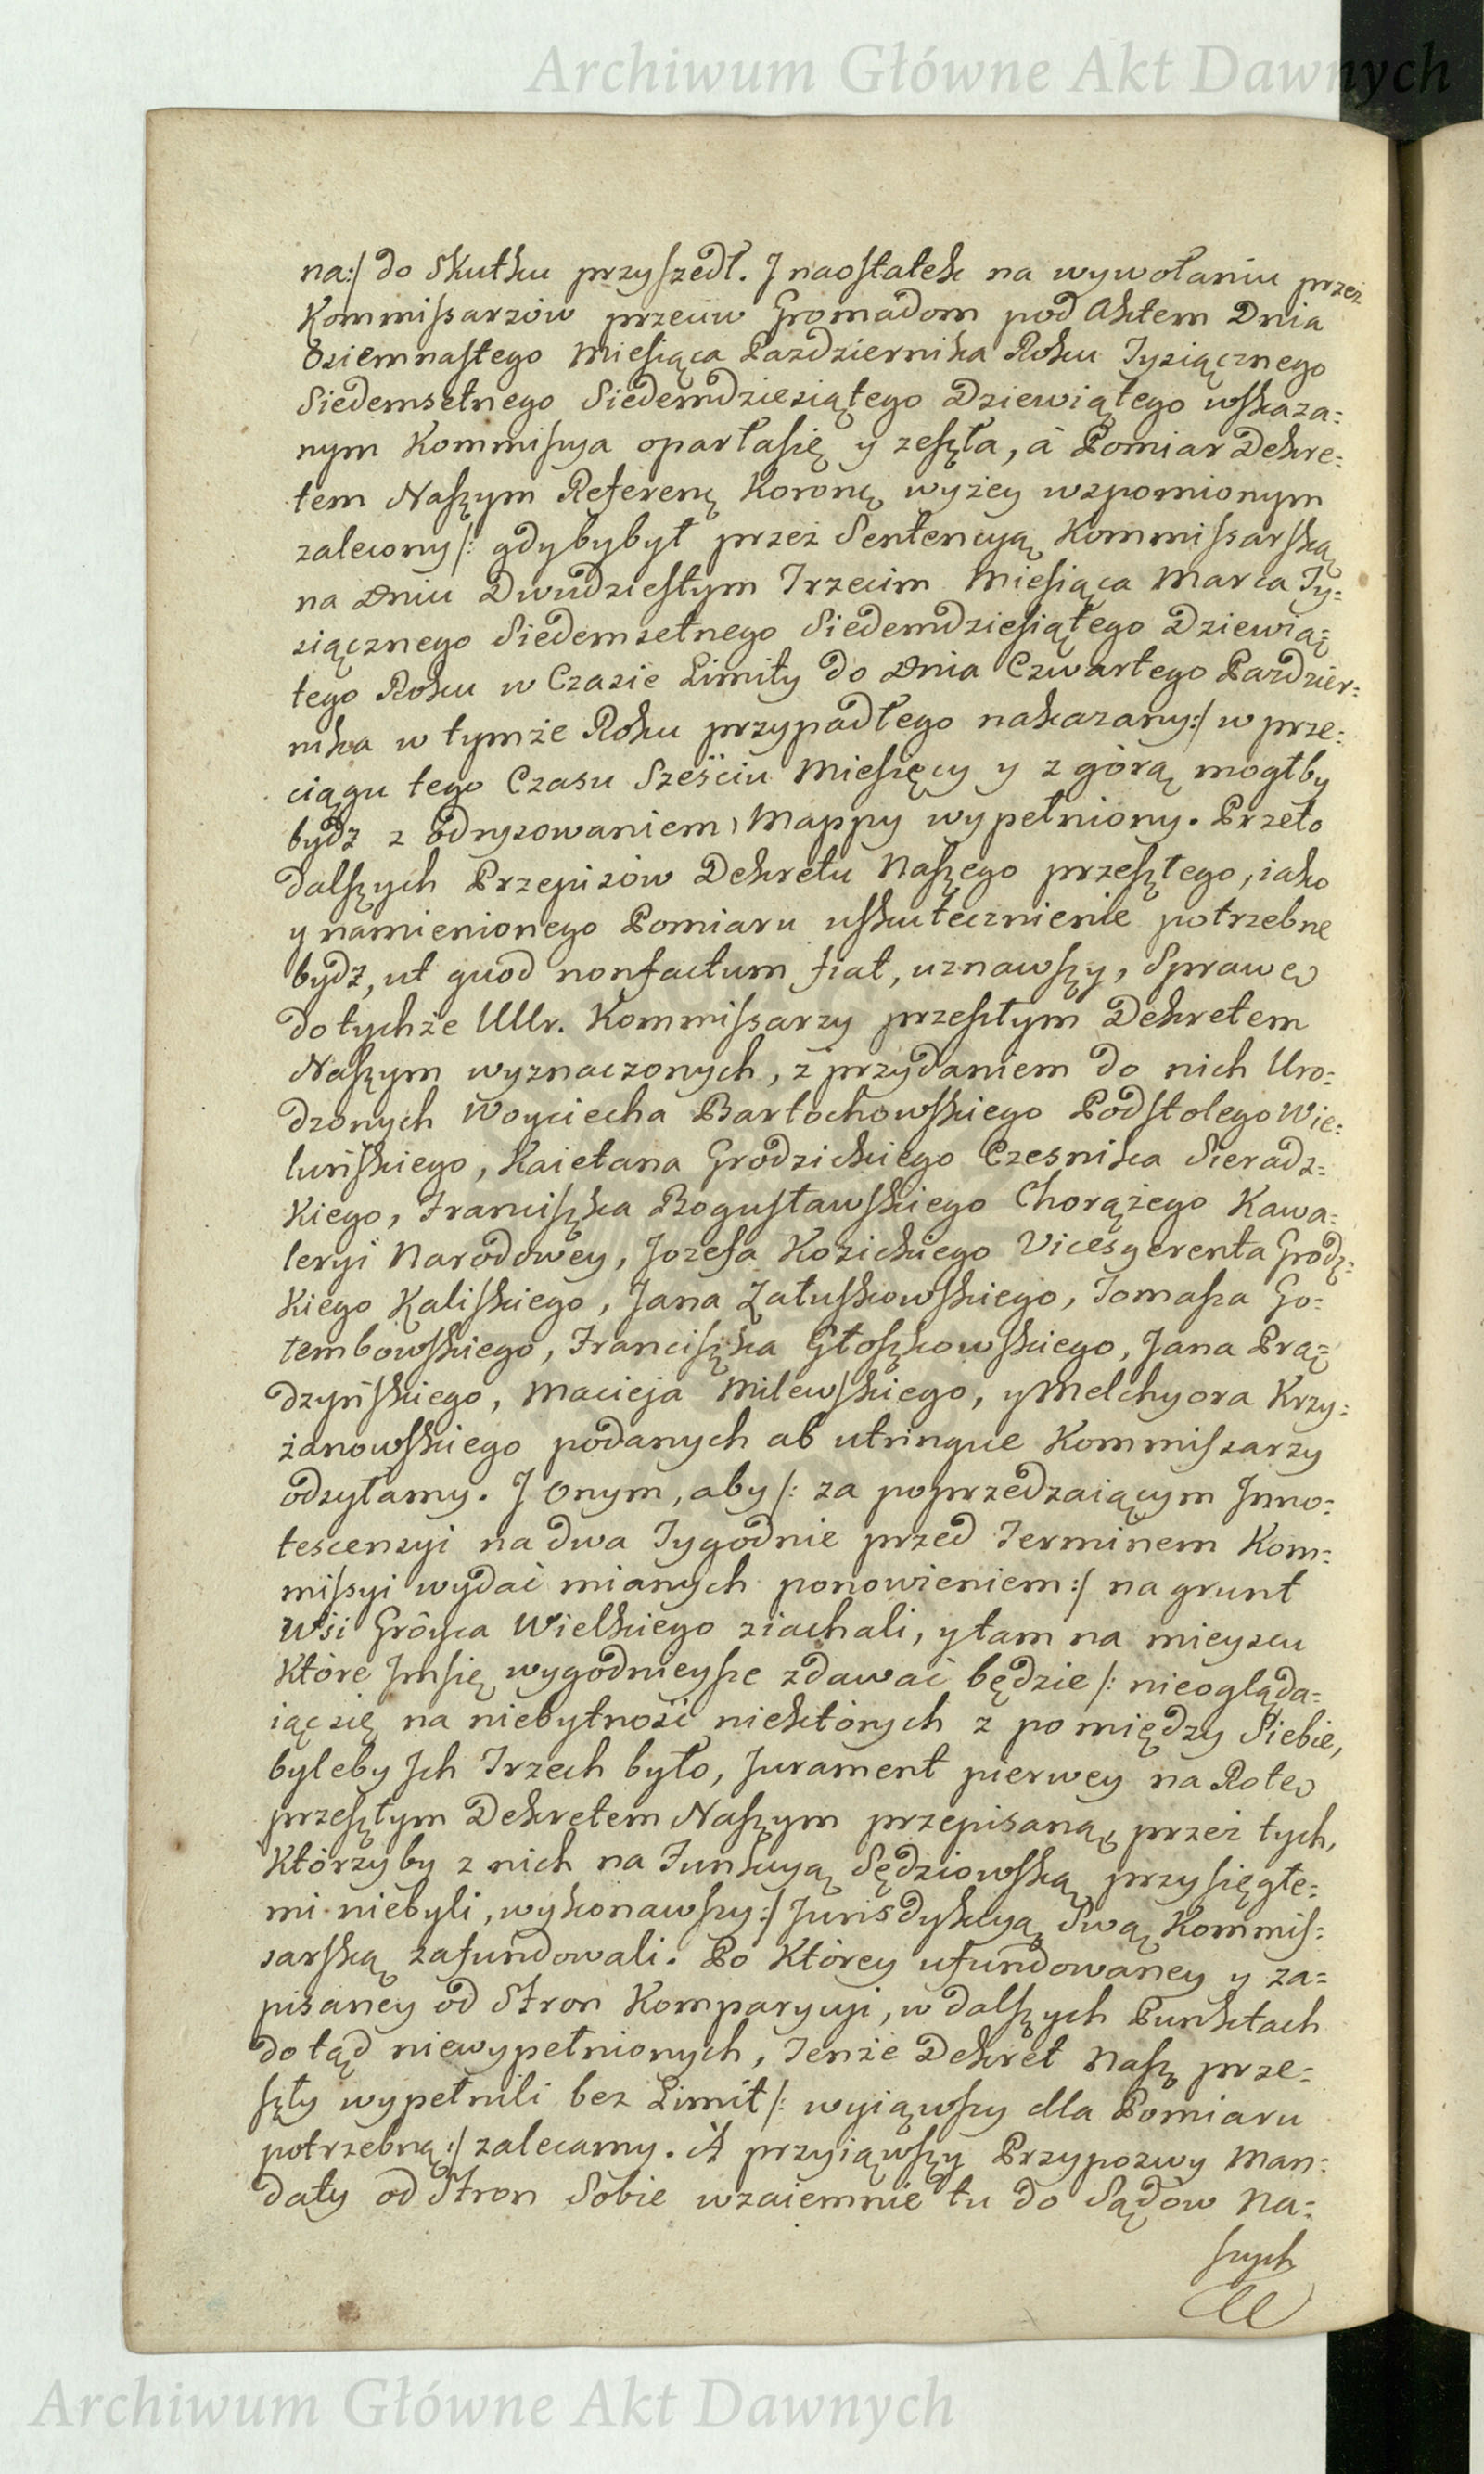 Archiwum Główne Akt Dawnych
na:/ do Skutku przyszedł. J naostatek na wywołaniu przez
Kommissarzów przeciw Gromadom pod Aktem Dnia
Osiemnastego Miesiąca Pazdziernika Roku Tysiącznego
Siedemsetnego Siedemdziesiątego Dziewiątego wskaza=
nym Kommissya opartasię y zeszła, á Pomiar Dekre=
tem Naszym Referen: Koron: wyżey wspomionym
zalecony /: gdybybył przez Sentencyą Kommissarską
na Dniu Dwudziestym Trzecim Miesiąca Marca Ty=
siącznego Siedemsetnego Siedemdziesiątego Dziewią=
tego Roku w Czasie Limity do Dnia Czwartego Pazdzier=
nika w tymże Roku przypadłego nakazany:/ w prze=
ciągu tego Czasu Sześciu Miesięcy y z górą mogłby
bydz z odrysowaniem Mappy wypełniony. Przeto
dalszych Przepisów Dekretu Naszego przeszłego, iako
y namienionego Pomiaru uskutecznienie potrzebne
bydz, ut quod nonfactum fiat, uznawszy, Sprawę
do tychże UUr. Kommissarzy przeszłym Dekretem
Naszym wyznaczonych, z przydaniem do nich Uro=
dzonych Woyciecha Bartochowskiego Podstolego Wie=
luńskiego, Kaietana Grodzickiego Czesnika Sieradz=
Kiego, Franciszka Bogusławskiego Chorążego Kawa=
leryi Narodowey, Jozefa Kozickiego Vicesgerenta Grodz=
Kiego Kaliskiego, Jana Załuskowskiego, Tomasza Go=
łembowskiego, Franciszka Głoszkowskiego, Jana Prą=
dzyńskiego, Macieja Milewskiego, y Melchyora Krzy=
żanowskiego podanych ab utrinque Kommissarzy
odsyłamy. J Onym, aby /: za poprzedzaiącym Inno=
tescencyi na dwa Tygodnie przed Terminem Kom=
missyi wydać mianych ponowieniem:/ na grunt
Wsi Gróyca Wielkiego ziachali, y tam na mieyscu
Które Jmsię wygodnieysze zdawać będzie /: nieogląda=
iąc się na niebytność niektórych z pomiędzy Siebie,
byleby Jch Trzech było, Jurament pierwey na Rotę
przeszłym Dekretem Naszym przepisaną, przez tych,
Którzyby z nich na Funkcyą Sędziowską przysięgłe=
mi niebyli, wykonawszy:/ Jurisdykcyą Swą Kommis=
sarską zafundowali. Po Którey ufundowaney y za=
pisaney od Stron Komparycyi, w dalszych Punktach
dotąd niewypełnionych, Tenże Dekret Nasz prze=
szły wypełnili bez Limit /: wyiąwszy dla Pomiaru
potrzebną:/ zalecamy. A przyiąwszy Przypozwy Man=
daty od Stron Sobie wzaiemnie tu do Sądow Na=
szych
Archiwum Główne Akt Dawnych